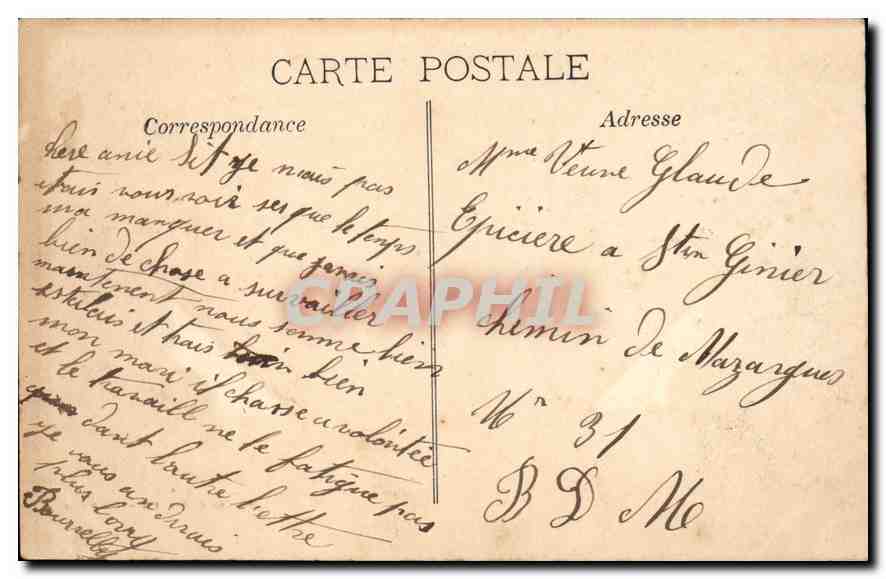 CARTE POSTALE
Correspondance
here amie Sit ye mais pas
etais vous voir ses que le temps
ma manquer et que javais
bien de chose a survailler
maintenent nous somme bien
et trais bien
mon mari il chasse a volontée
et le travaill ne le fatigue pas
dant lautre lettre
ye vous an dirrais
plus long
Adresse
Mme Veuve Glaude
Epiciere a Stn Ginier
Chemin de Mazargues
Nr 31
B D M
CPAPHIL